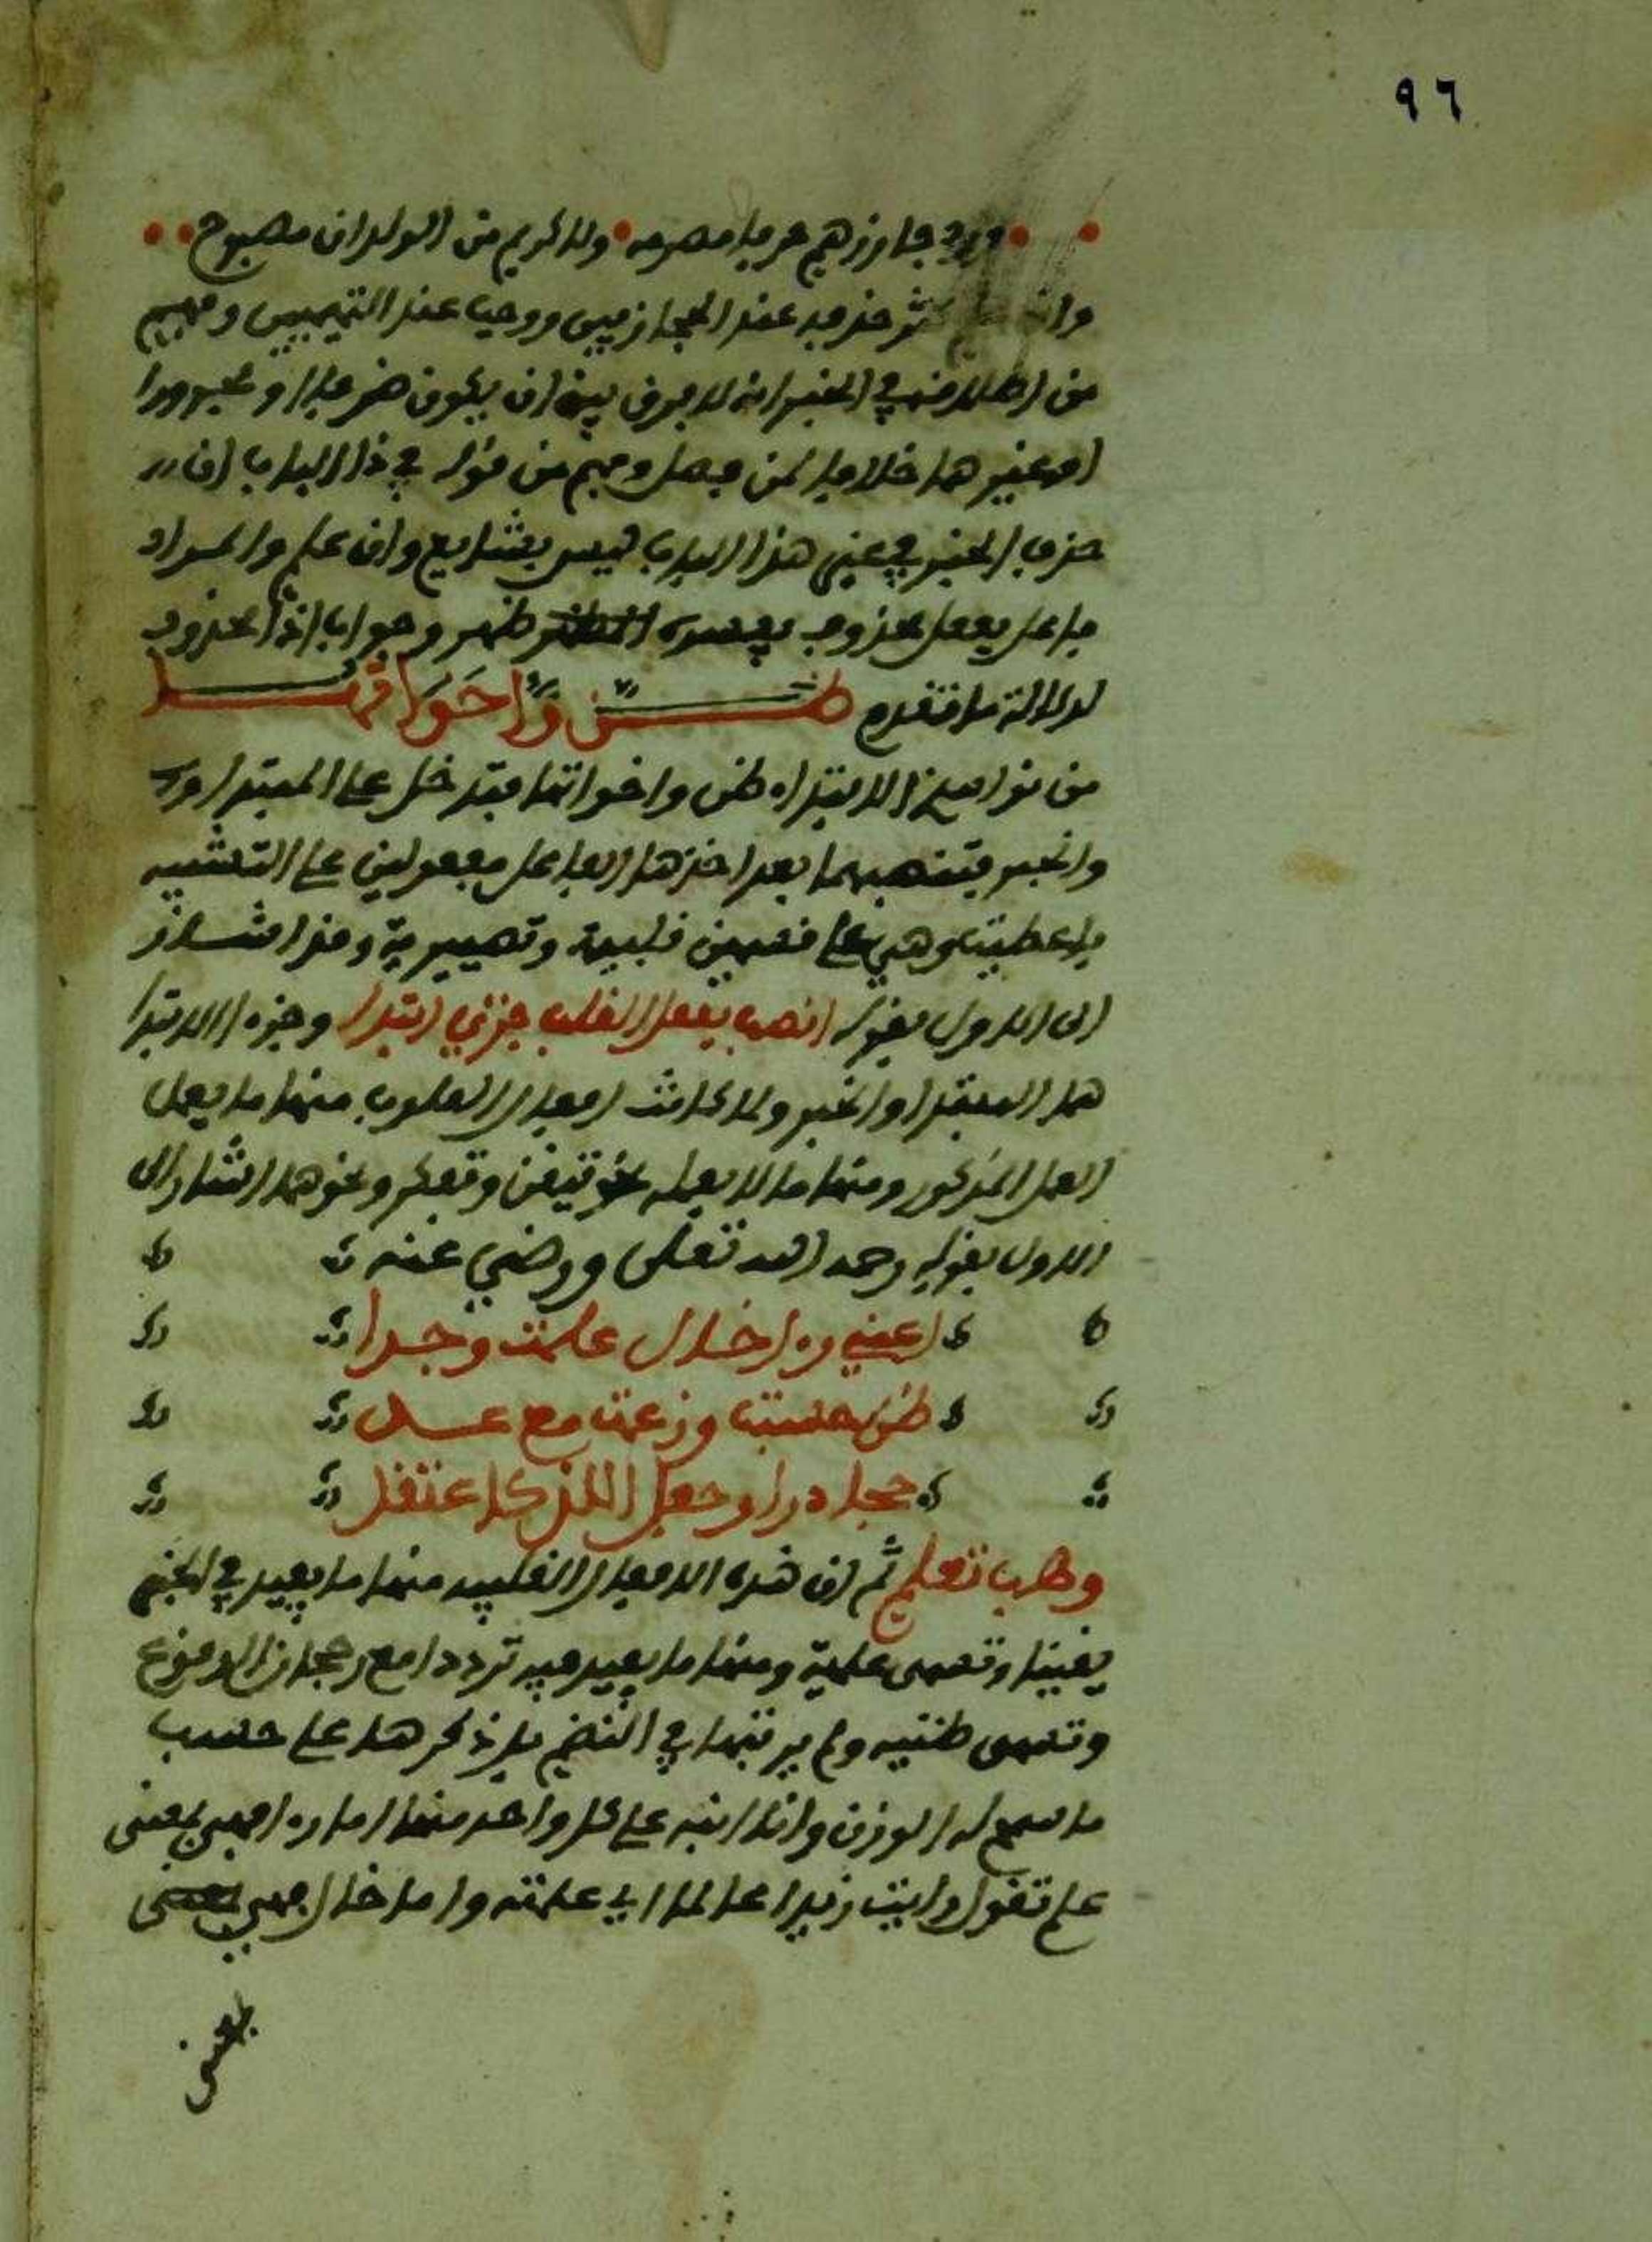 ٩٦
ورد جازرهم حرفا مصرمة • ولا كريم من الولدان مصبوح
وان علم كثر حذفه عند الحجازيين ووجب عند التميميين وفهم
من اطلاقه في الخبر انه لا فرق بين ان يكون ظرفا او مجرورا
او غيرهما خلافا لمن فصل وفهم من قوله في ذا الباب ان
حذف الخبر في غير هذا الباب ليس بشايع وان علم والمراد
فاعل بفعل محذوف يفسره ظهر وجواب اذا محذوف
لدلالة ما تقدم ظن واخواتها
من نواسخ الابتداء ظن واخواتها فتدخل على المبتدا
والخبر فتنصبهما بعد اخذها الفاعل مفعولين على التشبيه
باعطيت وهي على قسمين قلبية وتصييرية وقد اشار
الى الاول بقوله انصب بفعل القلب جزءي ابتدا وجزءا الابتدا
هما المبتدا والخبر ولما كانت افعال القلوب منها ما يعمل
العمل المذكور ومنها ما لا يعمله نحو تيقن وتفكر ونحوهما اشار الى
الاول بقوله رحمه الله تعلى ورضي عنه
اعني رءا خال علمت وجدا
ظن حسبت وزعمت مع عد
حجا درا وجعل اللذ كاعتقد
وهب تعلم ثم ان هذه الافعال القلبية منها ما يفيد في الخبر
يقينا وتسمى علمية ومنها ما يفيد فيه ترددا مع رجحان الوقوع
وتسمى ظنية ولم يرتبها في النظم بل ذكرها على حسب
ما سمح له الوزن وانا انبه على كل واحد منها اما رءا فهي بمعنى
علم تقول رايت زيدا عالما اي علمته واما خال فهي بمعنى
بمعنى